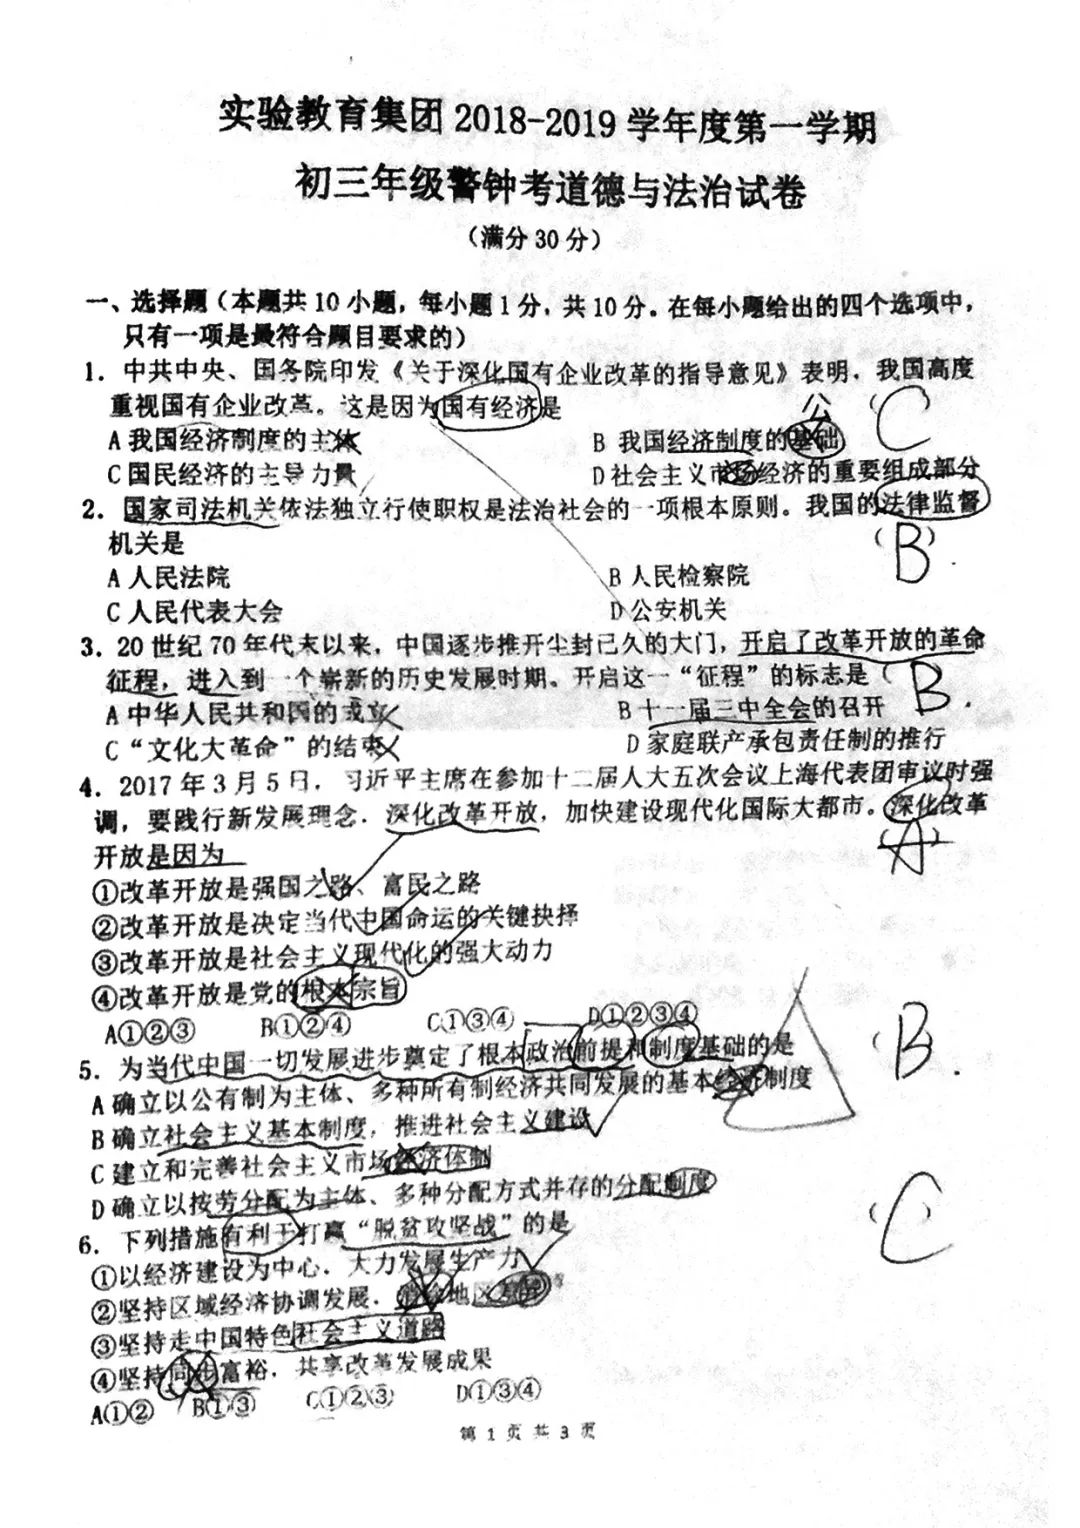 实验教育集团 2018-2019 学年度第一学期
初三年级警钟考道德与法治试卷
（满分 30 分）
一、选择题（本题共 10 小题，每小题 1 分，共 10 分。在每小题给出的四个选项中，
只有一项是最符合题目要求的）
1. 中共中央、国务院印发《关于深化国有企业改革的指导意见》表明，我国高度
重视国有企业改革。这是因为国有经济是 （ C ）
公
A 我国经济制度的主体 B 我国经济制度的基础
C 国民经济的主导力量 D 社会主义市场经济的重要组成部分
2. 国家司法机关依法独立行使职权是法治社会的一项根本原则。我国的法律监督
机关是 （ B ）
A 人民法院 B 人民检察院
C 人民代表大会 D 公安机关
3. 20 世纪 70 年代末以来，中国逐步推开尘封已久的大门，开启了改革开放的革命
征程，进入到一个崭新的历史发展时期。开启这一“征程”的标志是（ B
A 中华人民共和国的成立 B 十一届三中全会的召开
C “文化大革命”的结束 D 家庭联产承包责任制的推行
4. 2017 年 3 月 5 日，习近平主席在参加十二届人大五次会议上海代表团审议时强
调，要践行新发展理念，深化改革开放，加快建设现代化国际大都市。深化改革
开放是因为 （ A ）
①改革开放是强国之路、富民之路
②改革开放是决定当代中国命运的关键抉择
③改革开放是社会主义现代化的强大动力
④改革开放是党的根本宗旨
A①②③ B①②④ C①③④ D①②③④
5. 为当代中国一切发展进步奠定了根本政治前提和制度基础的是 （ B .
A 确立以公有制为主体、多种所有制经济共同发展的基本经济制度
B 确立社会主义基本制度，推进社会主义建设
C 建立和完善社会主义市场经济体制
D 确立以按劳分配为主体、多种分配方式并存的分配制度
6. 下列措施有利于打赢“脱贫攻坚战”的是 （ C
①以经济建设为中心，大力发展生产力
②坚持区域经济协调发展，地区
③坚持走中国特色社会主义道路
④坚持同步富裕，共享改革发展成果
A①② B①③ C①②③ D①③④
第 1 页 共 3 页